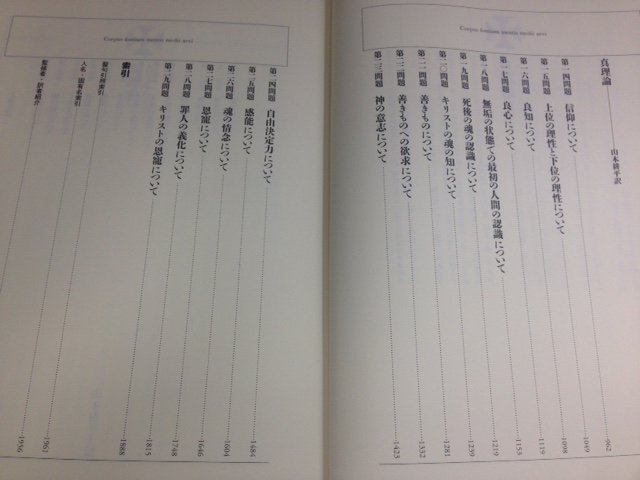 Corpus fontium mentis medii aevi
真理論 山本耕平訳
第一四問題 信仰について 962
第一五問題 上位の理性と下位の理性について 1049
第一六問題 良知について 1098
第一七問題 良心について 1119
第一八問題 無垢の状態での最初の人間の認識について 1153
第一九問題 死後の魂の認識について 1219
第二〇問題 キリストの魂の知について 1239
第二一問題 善きものについて 1281
第二二問題 善きものへの欲求について 1332
第二三問題 神の意志について 1423
Corpus fontium mentis medii aevi
第二四問題 自由決定力について 1484
第二五問題 感能について 1604
第二六問題 魂の情念について 1646
第二七問題 恩寵について 1748
第二八問題 罪人の義化について 1815
第二九問題 キリストの恩寵について 1888
索引
聖句引照索引
人名・固有名索引 1961
監修者・訳者紹介 1956